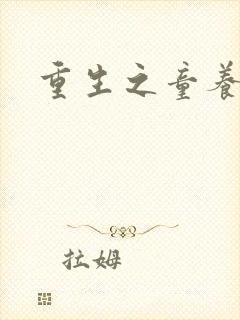 重生之童养
拉姆